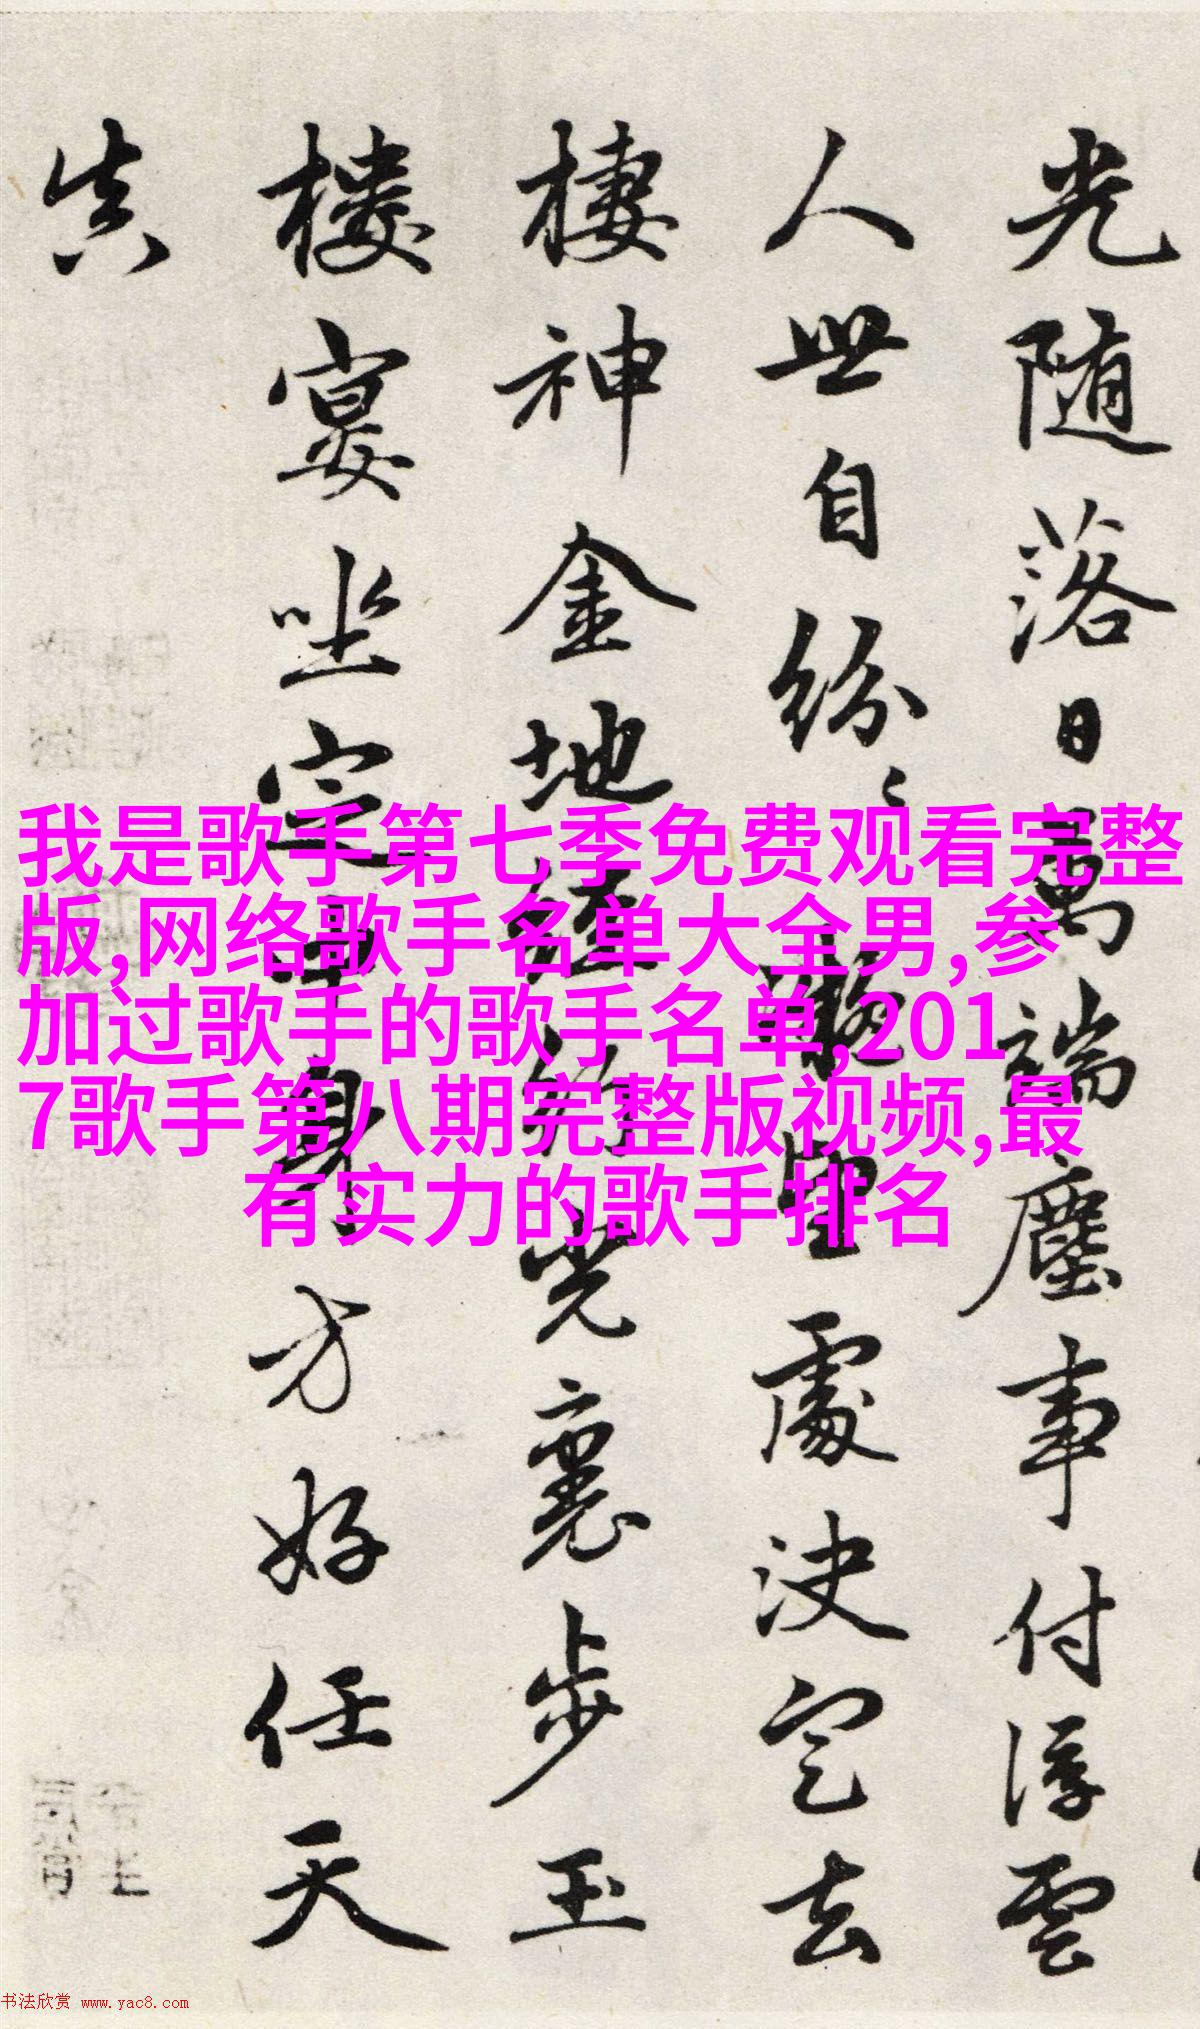 光随落日萬端塵事付浮雲
人世自紛〻處決定去
棲神金地經行光裏步玉
樓宴坐定中身方好任天
真
我是歌手第七季免费观看完整
版,网络歌手名单大全男,参
加过歌手的歌手名单,201
7歌手第八期完整版视频,最
有实力的歌手排名
书法欣赏 www.yac8.com